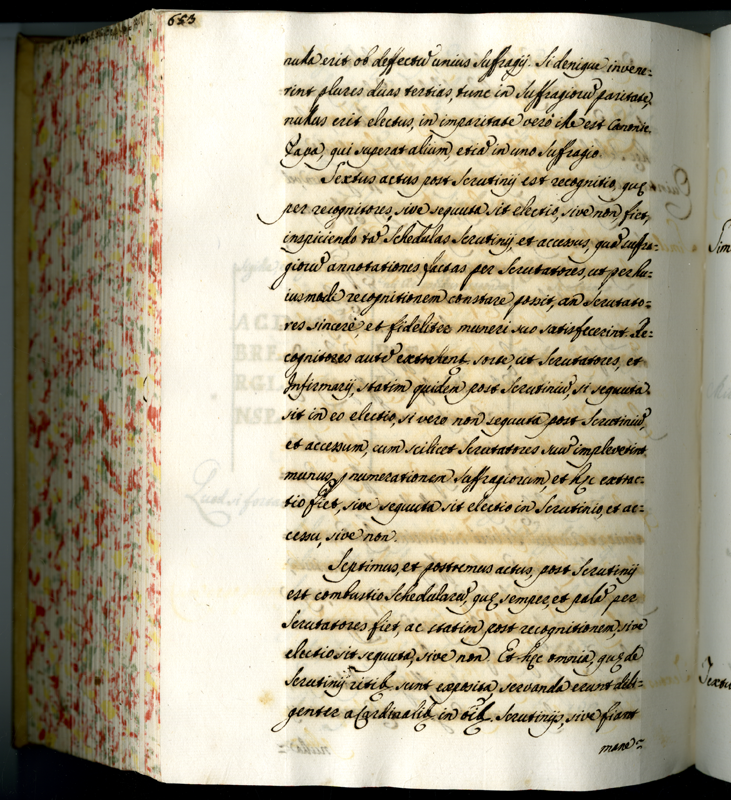 653
nulla erit ob deffectũ unius suffragij. Si denique invene=
rint plures duas tertias, tunc in suffragiorũ paritate,
nullus erit electus, in imparitate verò ille est Canonice
Papa, qui superat alium, etiã in uno suffragio.
Sextus actus post Scrutinij est recognitio, quę
per recognitores, sive sequuta sit electio, sive non, fiet,
inspiciendo tã Schedulas Scrutinij, et accessus, quã suffra=
giorũ annotationes factas per Scrutatores, ut per hu=
iusmodi recognitionem constare possit, an Scrutato=
res sincerè, et fideliter muneri suo satisfecerint. Re=
cognitores autẽ extrahent. sorte, ut Scrutatores, et
Infirmarij, statim quidem post Scrutiniũ, si sequuta
sit in eo electio, si vero non sequuta post Scrutiniũ,
et accessum, cum scilicet Scrutatores suũ impleverint
munus, numerationem suffragiorum, et hęc extrac=
tio fiet, sive sequuta sit electio in Scrutinio, et ac=
cessu, sive non.
Septimus, et postremus actus, post Scrutinij
est combustio Schedularũ, quę semper, et palã per
Scrutatores fiet, ac statim post recognitionem, sive
electio sit sequuta, sive non. Et hęc omnia, quę de
Scrutinij ritib. sunt exposita, servanda erunt dili=
genter a Cardinalib. in oib. Scrutinijs, sive fiant
mane=